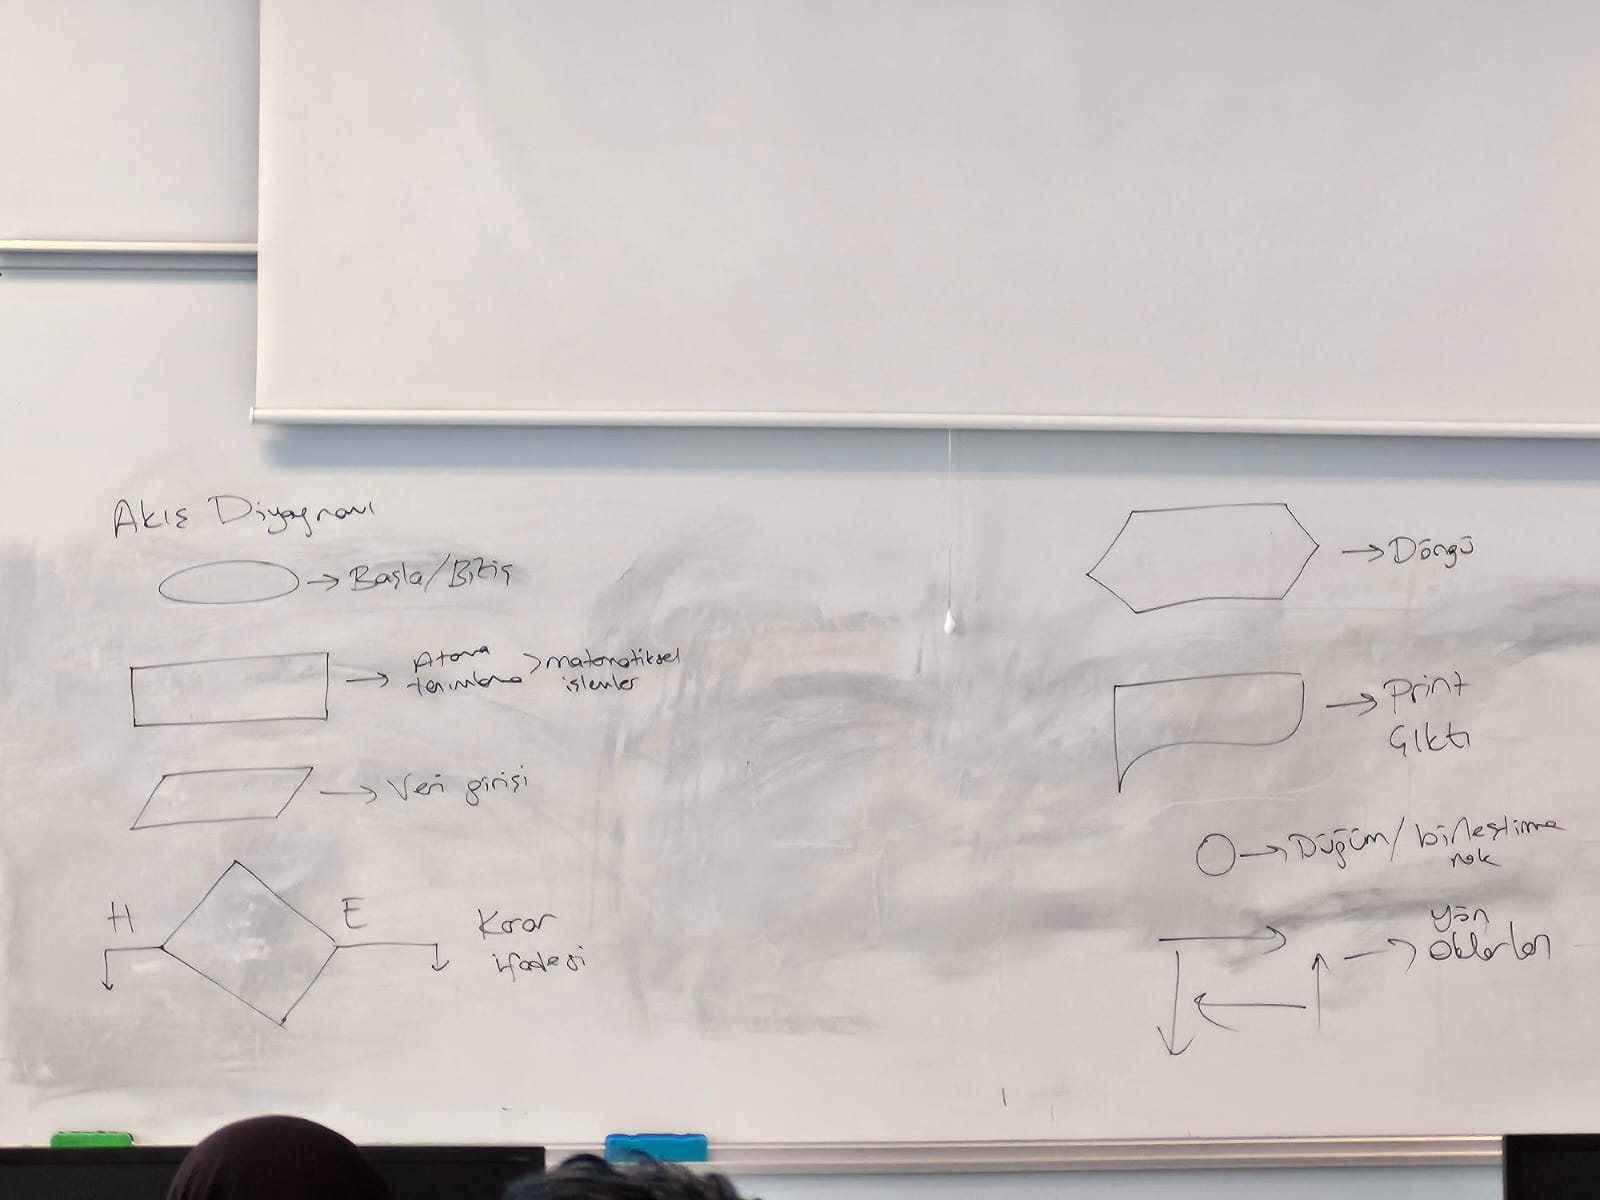 Akış Diyagramı
Başla/Bitiş
Atama
tanımlama > matematiksel
işlemler
Veri girişi
H
E
Karar
ifadesi
Döngü
Print
Çıktı
Düğüm/birleştirme
nok
yön
okları